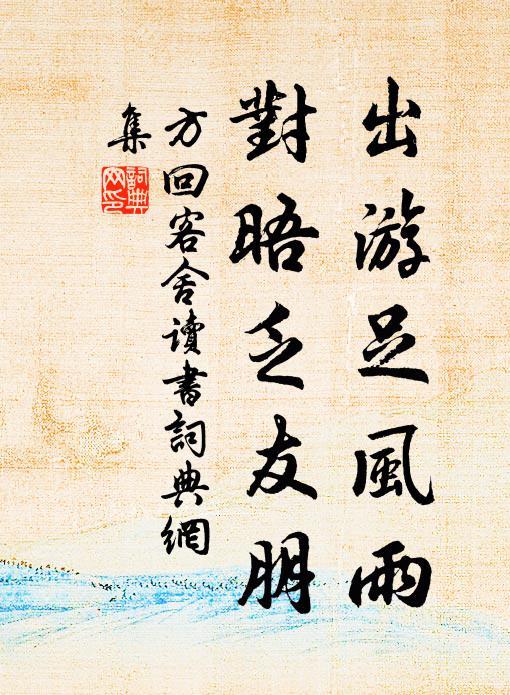 出游足風雨
對晤乏友朋
方回客舍讀書詞典網
集
詞典
网印